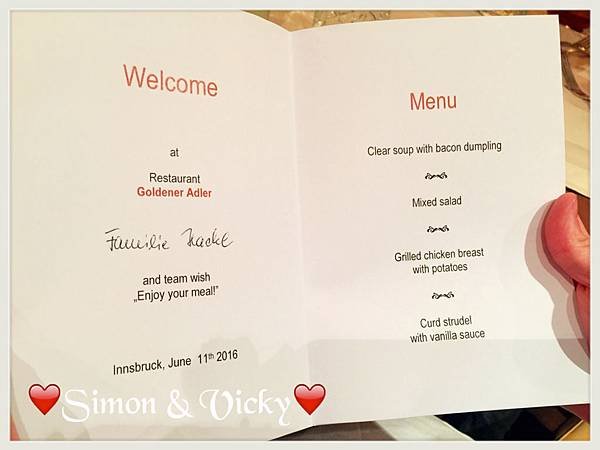 Welcome
at
Restaurant
Goldener Adler
Familie Hackl
and team wish
„Enjoy your meal!”
Innsbruck, June 11th 2016
Menu
Clear soup with bacon dumpling
Mixed salad
Grilled chicken breast
with potatoes
Curd strudel
with vanilla sauce
Simon & Vicky